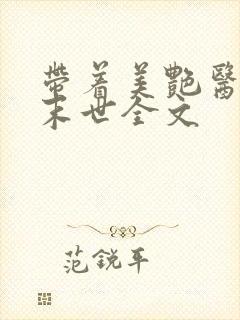 带着美艷醫
末世全文
范銳平